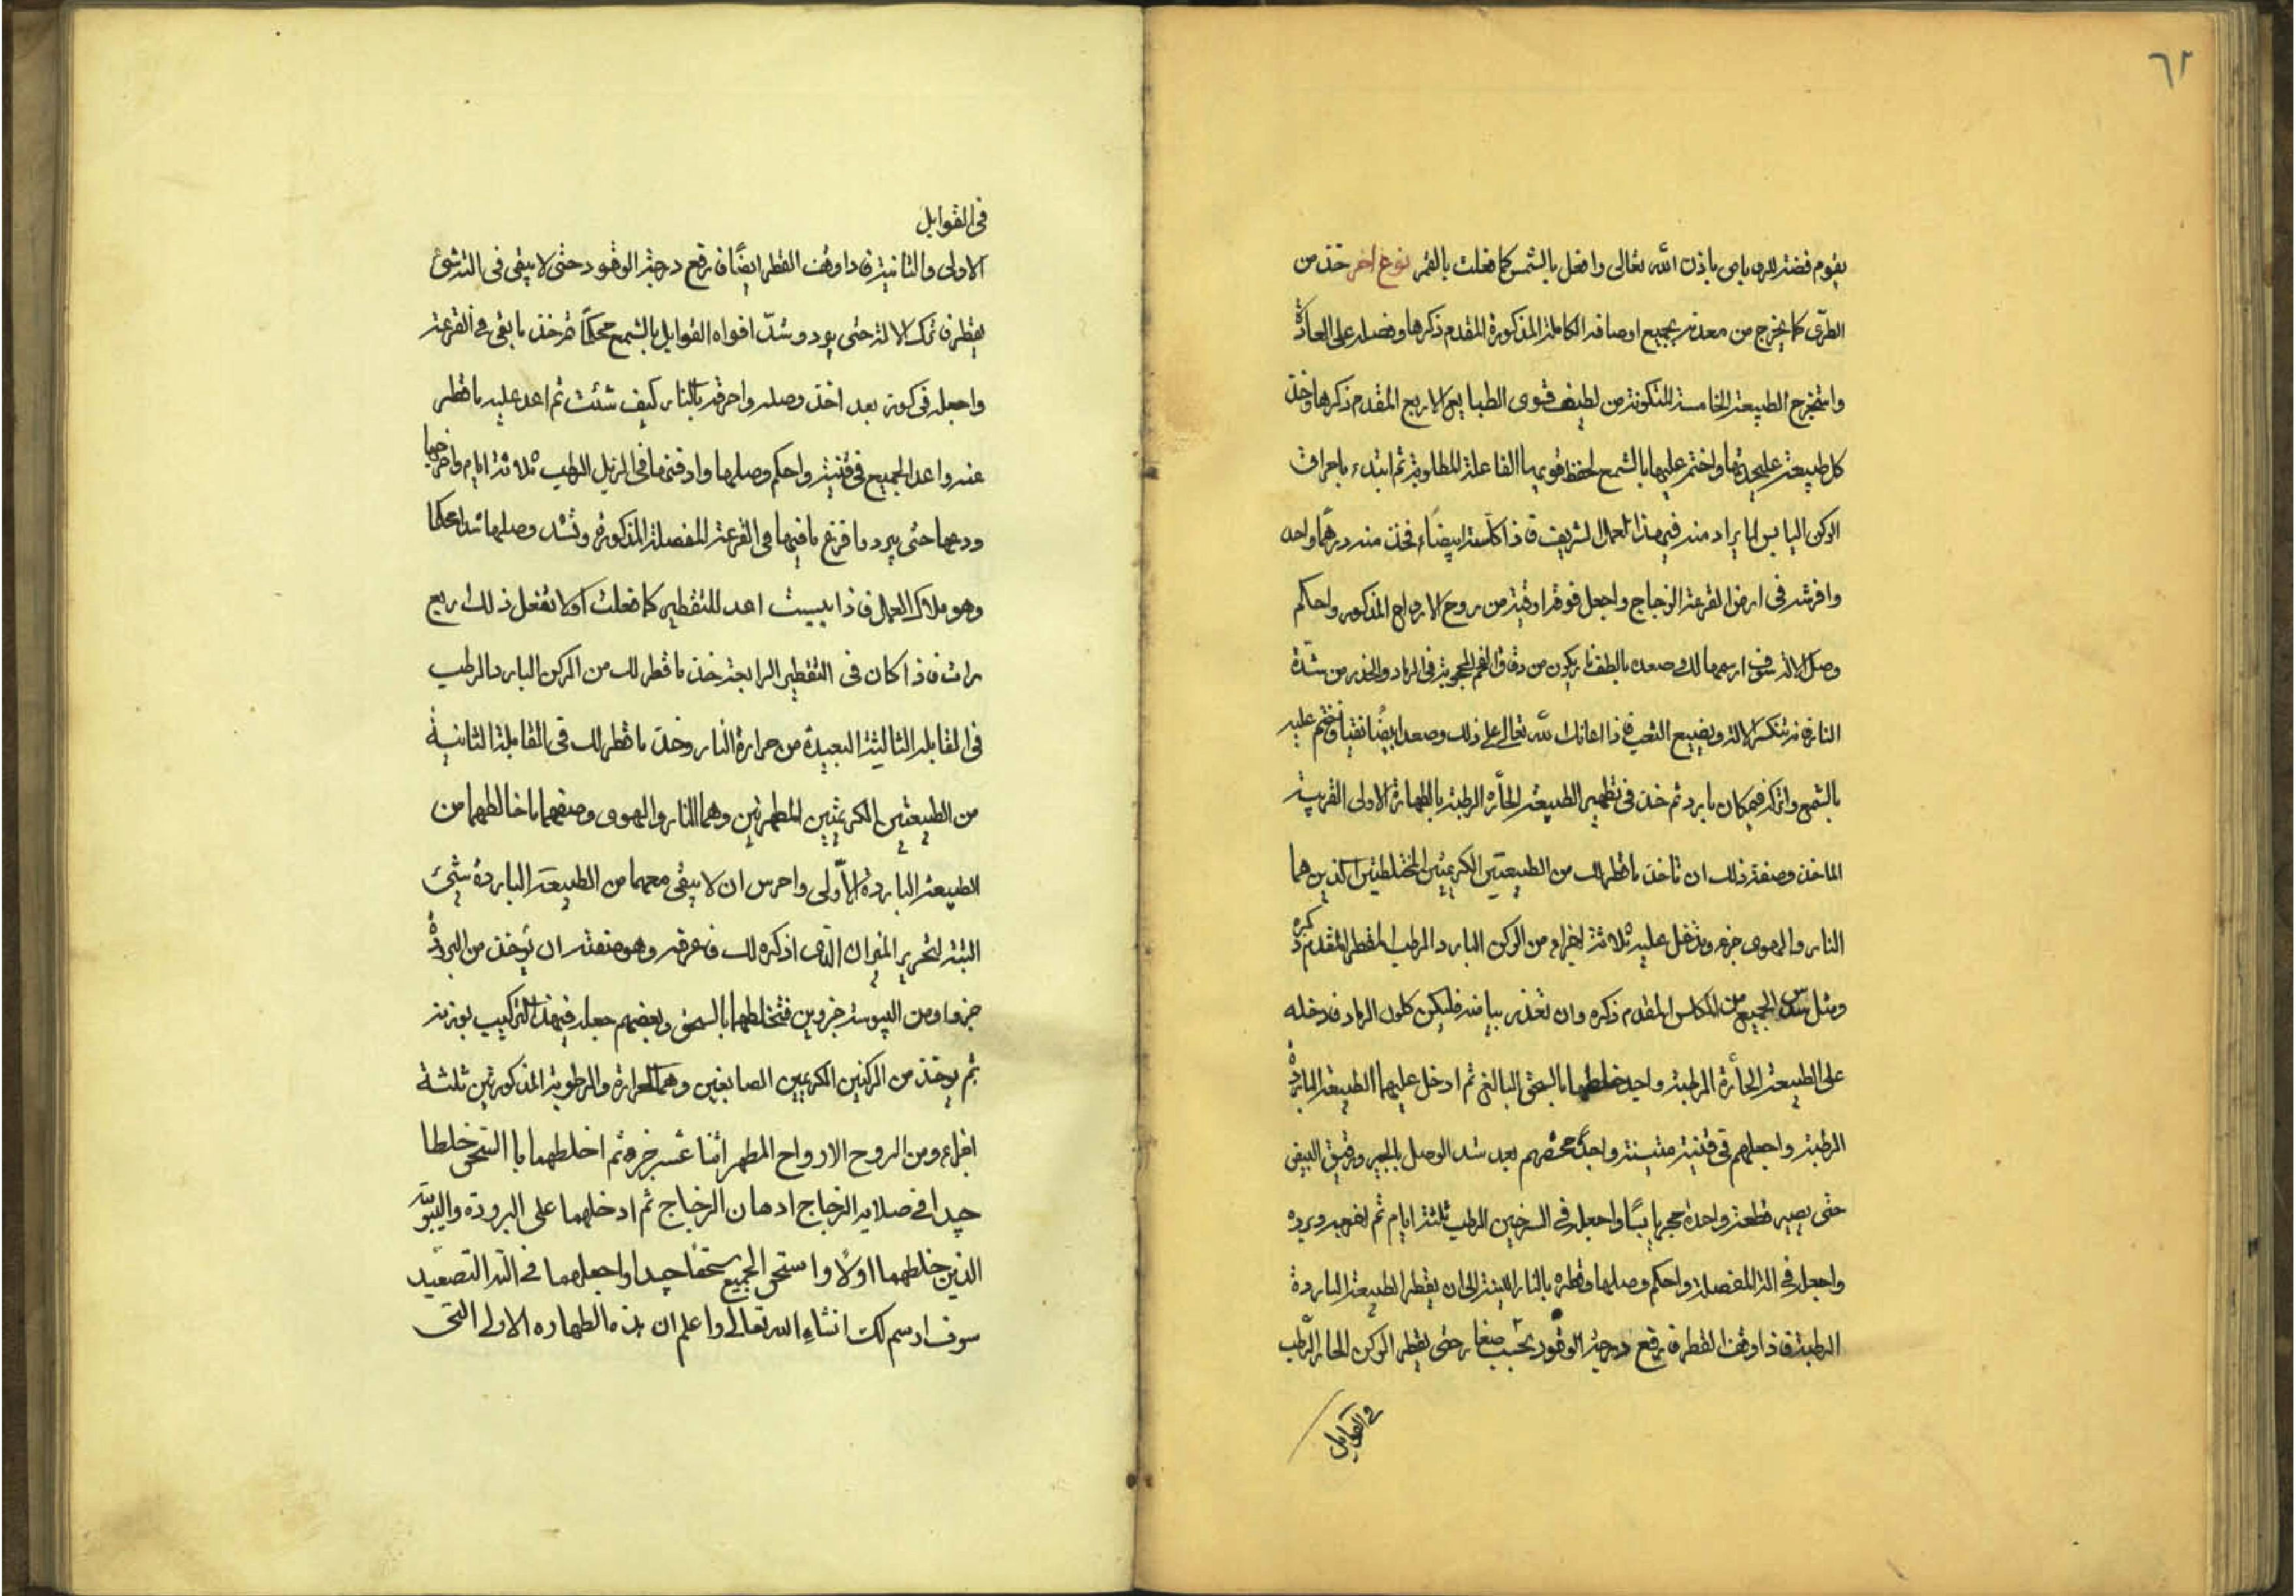 ٦٢
يقوم فضة للروباص باذن الله تعالى وافعل بالشمس كما فعلت بالقمر نوع اخر خذ من
الطرى كما يخرج من معدنه بجميع اوصافه الكاملة المذكورة المقدم ذكرها وفصله على العادة
واستخرج الطبيعة الخامسة المتكونة من لطيف قوى الطبايع الاربع المقدم ذكرها وخذ
كل طبيعة عليحدتها واختم عليها بالشمع لحفظ قويها الفاعلة المطلوبة ثم ابتدء باحراق
الركن اليابس لما يراد منه فى هذا العمل الشريف فاذا كلسته ابيضاء فخذ منه درهما واحد
وافرشه فى ارض القرعة الزجاج واجعل فوقه اوقية من روح الارواح المذكور واحكم
وصل الالة سوف ارسمها لك وصعده بالطف نار يكون من دقاق الفحم المحجوبة فى الرماد والحذر من شدة
النار فتنكسر الالة ويضيع التعب فاذا اعانك الله تعالى على ذلك وصعد ابيضا نقيا فاختم عليه
بالشمع واتركه فى مكان بارد ثم خذ فى تطهير الطبيعة الحارة الرطبة بالطهارة الاولى القريبة
الماخذ وصفة ذلك ان تاخذ ما قطر لك من الطبيعتين الكريمتين المختلطتين الذين هما
النار والهوى جزء وتدخل عليه ثلاثة اجزاء من الركن البارد الرطب المقطر المقدم ذكره
ومثل سدس الجميع من الكلس المقدم ذكره وان تعذر بياضه فليكن كلون الرماد فادخله
على الطبيعة الحارة الرطبة واجيد خلطهما بالسحق البالغ ثم ادخل عليهما الطبيعة الباردة
الرطبة واجعلهم فى قنينة متينة واجد مخضهم بعد شد الوصل بالجير ورقيق البيض
حتى يصير قطعة واحدة حجر يابسا واجعله فى السرجين الرطب ثلثة ايام ثم اخرجه وبرده
واجعله فى الة المفصلة واحكم وصلها وقطره بالنار اللينة الى ان يقطر الطبيعة الباردة
الرطبة فاذا وقف القطر فارفع درجة الوقود بحسب صغار حتى يقطر الركن الحار الرطب
فى القوابل
فى القوابل
الاولى والثانية فاذا وقف القطر ايضا فارفع درجة الوقود حتى لا يبقى فى الة شئ
يقطر فاترك الالة حتى يبرد وشد افواه القوابل بالشمع محكما ثم خذ ما بقى فى القرعة
واجعله فى كوز بعد اخذ وصله واحرقه بالنار كيف شئت ثم اعد عليه ما قطر
عنه واعد الجميع فى قنينة واحكم وصلها وادفنها فى الزبل الرطب ثلاثة ايام واخرجها
ودعها حتى يبرد فافرغ ما فيها فى القرعة المفصلة المذكورة وتشد وصلها شدا محكما
وهو ملاك العمل فاذا يبست اعد للتقطير كما فعلت اولا تفعل ذلك اربع
مرات فاذا كان فى التقطير الرابعة خذ ما قطر لك من الركن البارد الرطب
فى القابلة الثالثة البعيدة من حرارة النار وخذ ما قطر لك فى القابلة الثانية
من الطبيعتين الكريمتين المطهرتين وهما النار والهوى وصفهما ما خالطهما من
الطبيعة الباردة الاولى واحرس ان لا يبقى معهما من الطبيعة الباردة شئ
البتة لتحرير الميزان الذى اذكره لك فاعرفه وهو صفته ان تؤخذ من البرودة
جزوا ومن اليبوسة جزوين فتخلطهما بالسحق وبعضهم جعله فى هذا التركيب بوزنة
ثم يوخذ من الركنين الكريمين الصابغين وهما الحرارة والرطوبة المذكورتين ثلثة
اجزاء ومن الروح الارواح المطهر اثنا عشر جزء ثم اخلطهما با السحق خلطا
جيدا فى صلايه الزجاج ادهان الزجاج ثم ادخلهما على البرودة واليبوسة
الذين خلطهما اولا واسحق الجميع سحقا جيدا واجعلهما فى الة التصعيد
سوف ارسم لك انشاء الله تعالى واعلم ان هذه الطهاره الاولى التى